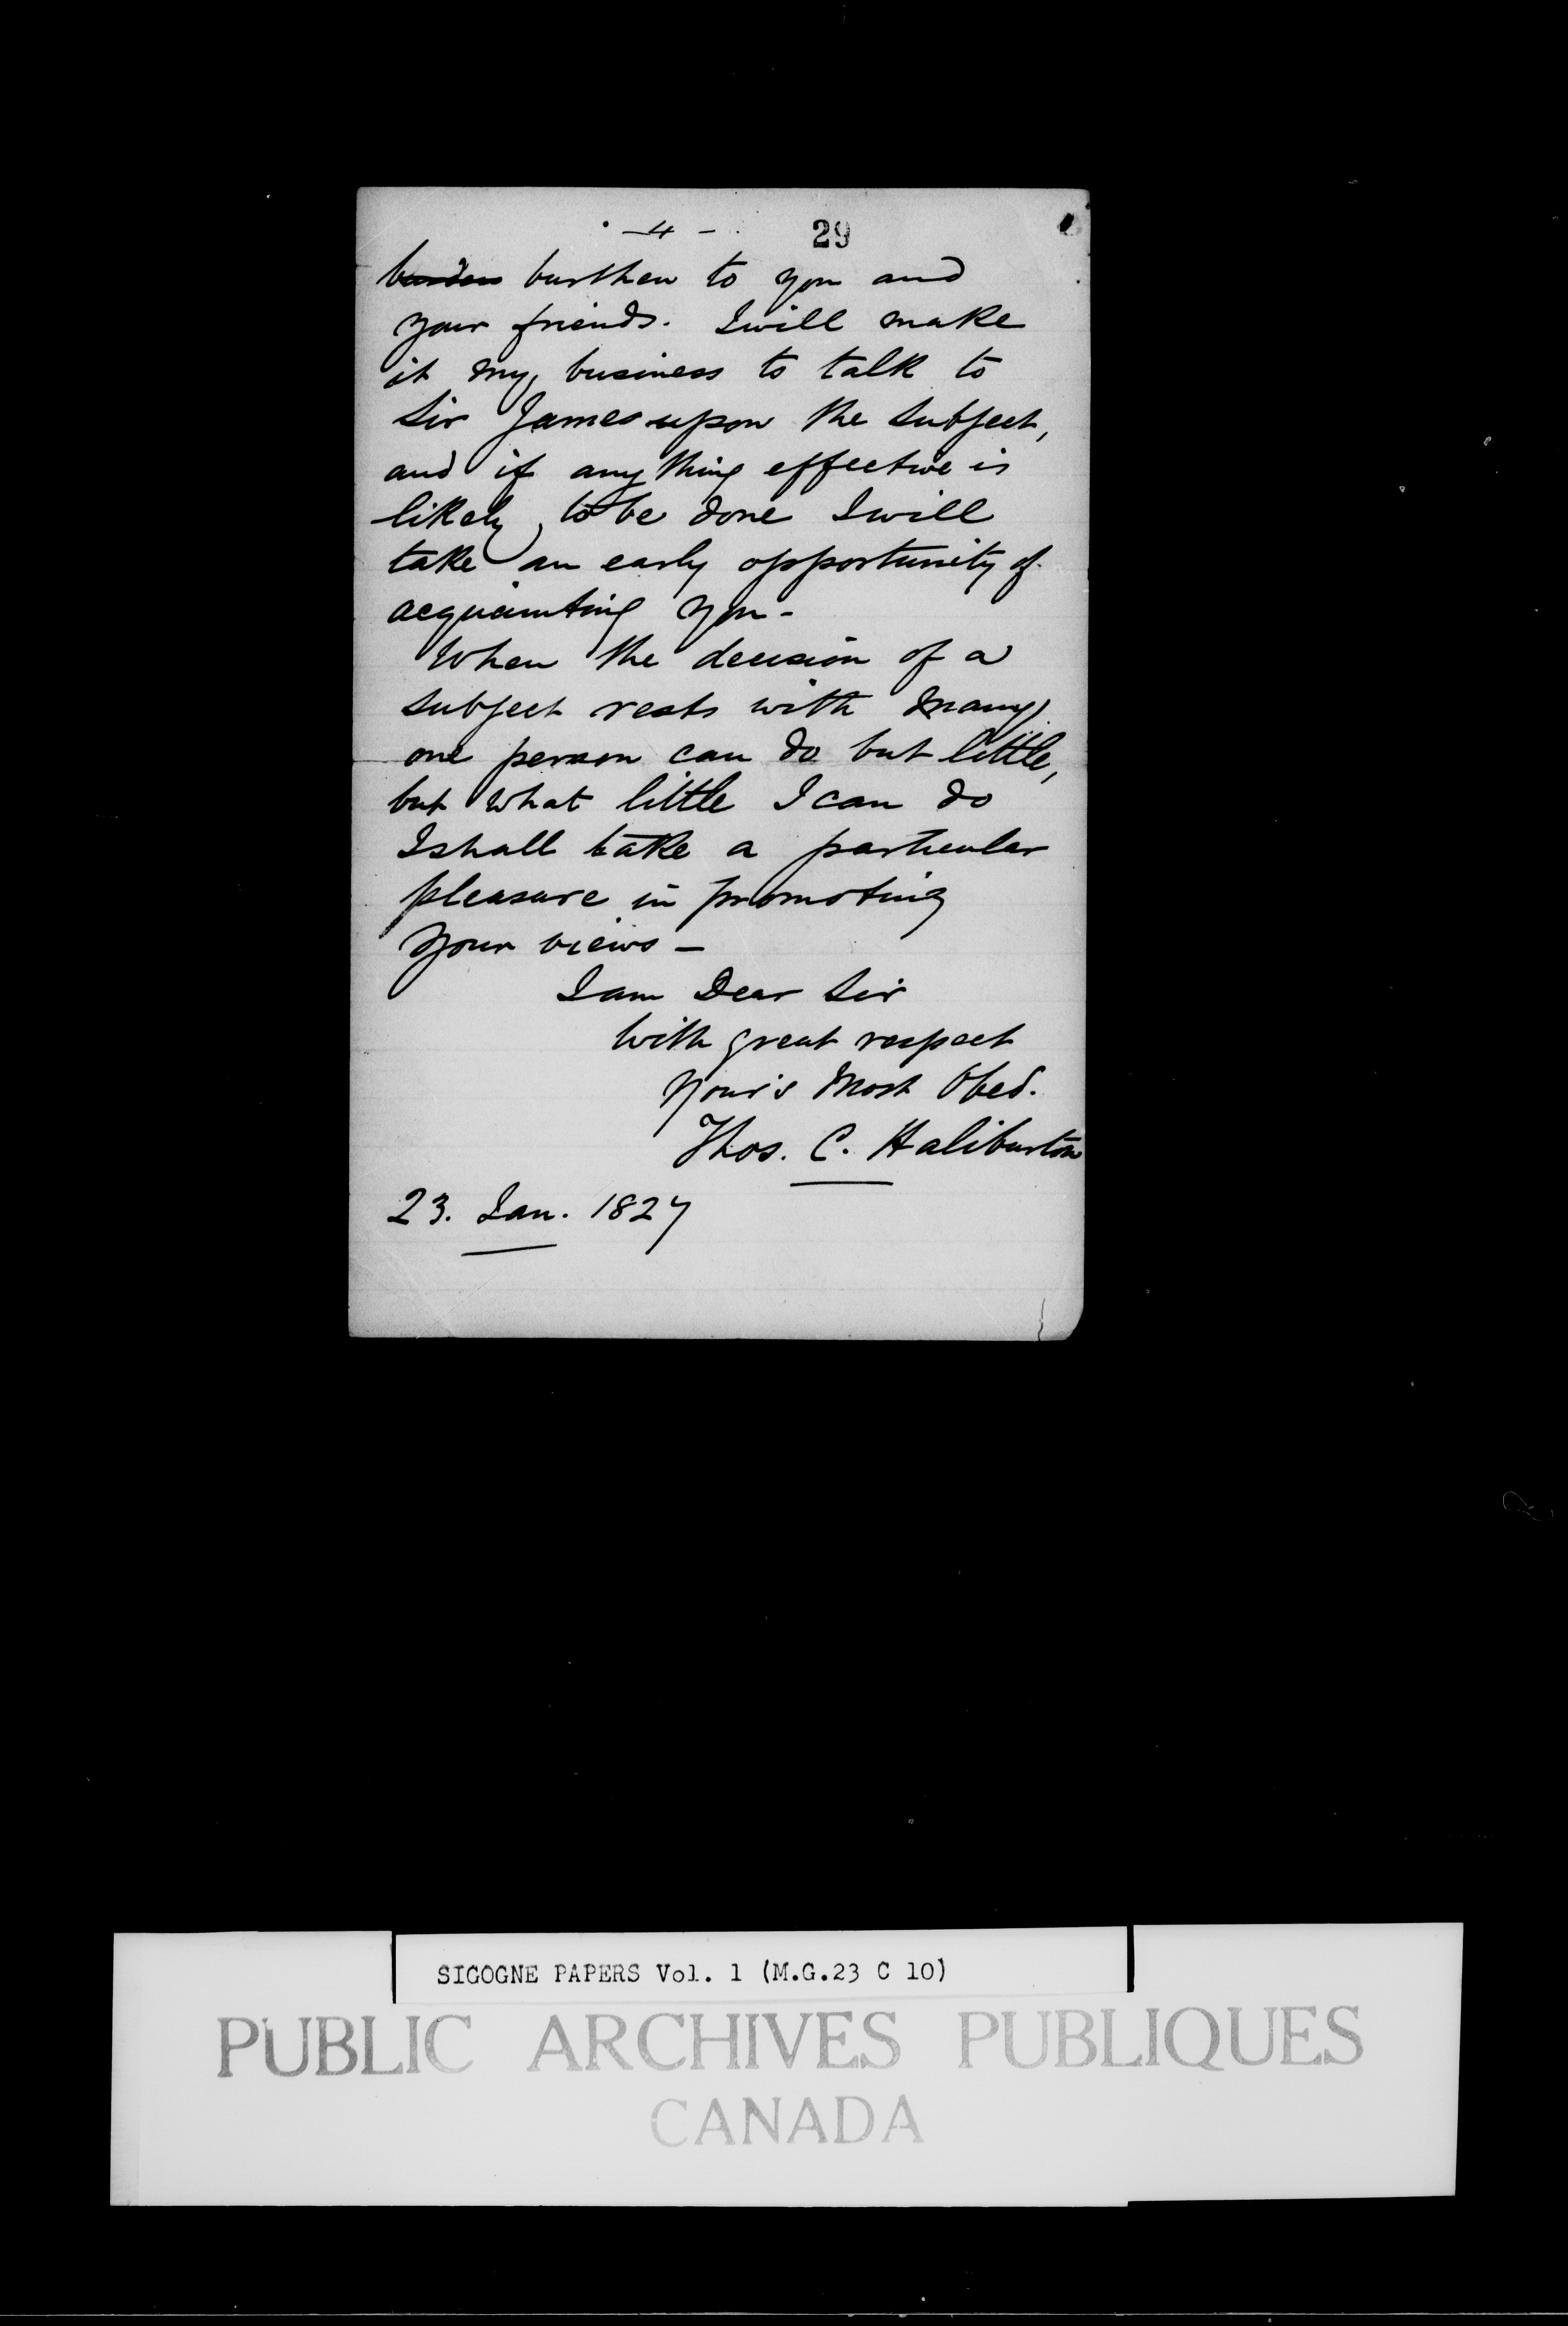 - 4 -
29
burden burthen to you and
your friends. I will make
it my business to talk to
Sir James upon the subject,
and if any thing effective is
likely to be done I will
take an early opportunity of
acquainting you -
When the decision of a
subject rests with many
one person can do but little,
but what little I can do
I shall take a particular
pleasure in promoting
your views -
I am Dear Sir
With great respect
Your's Most Obed.
Thos. C. Haliburton
23. Jan. 1827
SIGOGNE PAPERS Vol. 1 (M.G.23 C 10)
PUBLIC ARCHIVES PUBLIQUES
CANADA